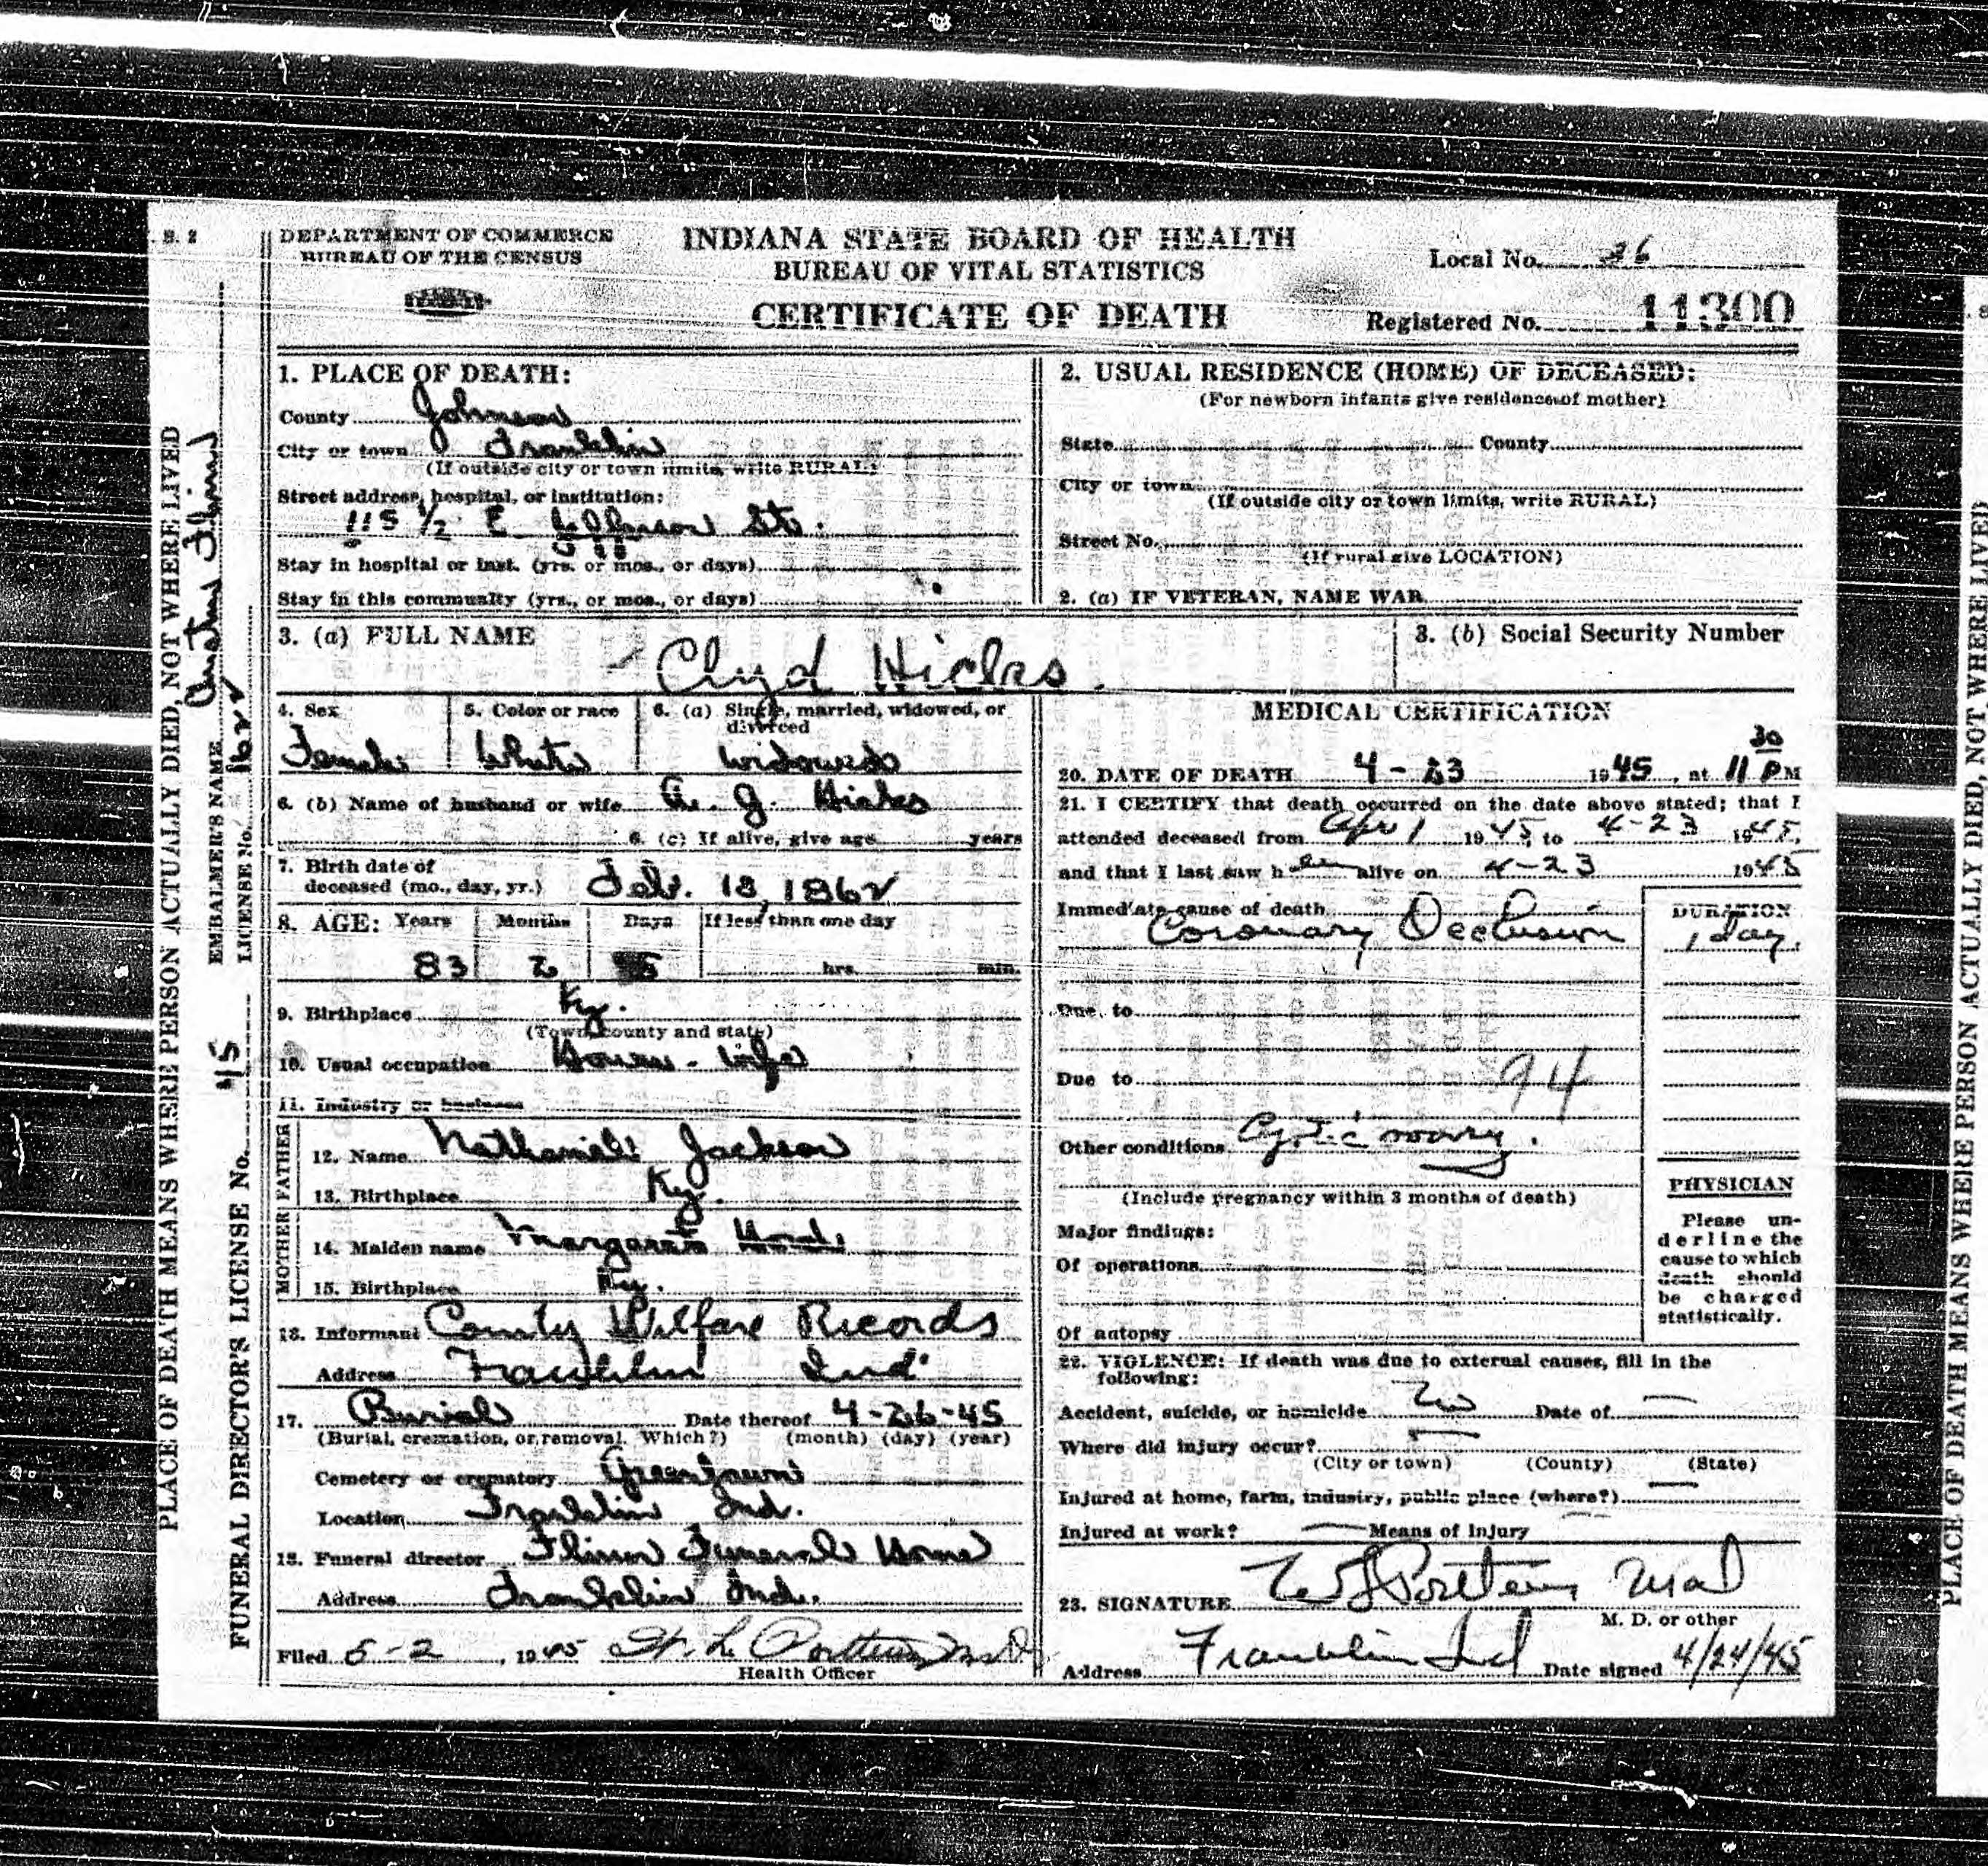 S. 2
DEPARTMENT OF COMMERCE
BUREAU OF THE CENSUS
INDIANA STATE BOARD OF HEALTH
BUREAU OF VITAL STATISTICS
CERTIFICATE OF DEATH
Local No. 36
Registered No. 11300
PLACE OF DEATH MEANS WHERE PERSON ACTUALLY DIED, NOT WHERE LIVED
EMBALMER'S NAME Flinn
LICENSE No. 1622
FUNERAL DIRECTOR'S LICENSE No. 45
1. PLACE OF DEATH:
County Johnson
City or town Franklin
(If outside city or town limits, write RURAL)
Street address, hospital, or institution:
115 1/2 E. Jefferson Str.
Stay in hospital or inst. (yrs. or mos., or days)
Stay in this community (yrs., or mos., or days)
2. USUAL RESIDENCE (HOME) OF DECEASED:
(For newborn infants give residence of mother)
State County
City or town
(If outside city or town limits, write RURAL)
Street No.
(If rural give LOCATION)
2. (a) IF VETERAN, NAME WAR
3. (a) FULL NAME Clyd Hicks.
3. (b) Social Security Number
4. Sex Female
5. Color or race White
6. (a) Single, married, widowed, or divorced widowed
6. (b) Name of husband or wife J. Hicks
6. (c) If alive, give age years
7. Birth date of
deceased (mo., day, yr.) Feb. 18, 1862
8. AGE: Years Months Days If less than one day
83 2 5 hrs. min.
9. Birthplace Ky.
(Town, county and state)
10. Usual occupation House-wife
11. Industry or business
FATHER
12. Name Nathaniel Jackson
13. Birthplace Ky.
MOTHER
14. Maiden name Margaret
15. Birthplace Ky.
16. Informant County Welfare Records
Address Franklin Ind.
17. Burial Date thereof 4-26-45
(Burial, cremation, or removal. Which?) (month) (day) (year)
Cemetery or crematory Greenlawn
Location Franklin Ind.
18. Funeral director Flinn Funeral Home
Address Franklin Ind.
Filed 5-2, 1945
Health Officer
MEDICAL CERTIFICATION
20. DATE OF DEATH 4-23 1945, at 11 30 PM
21. I CERTIFY that death occurred on the date above stated; that I
attended deceased from Apr 1 1945, to 4-23 1945,
and that I last saw her alive on 4-23 1945
Immediate cause of death
Coronary Occlusion
DURATION
1 day.
Due to
Due to
94
Other conditions Cystic
(Include pregnancy within 3 months of death)
Major findings:
Of operations
Of autopsy
PHYSICIAN
Please un-
derline the
cause to which
death should
be charged
statistically.
22. VIOLENCE: If death was due to external causes, fill in the
following:
Accident, suicide, or homicide No Date of —
Where did injury occur? —
(City or town) (County) (State)
Injured at home, farm, industry, public place (where?) —
Injured at work? — Means of Injury —
23. SIGNATURE
M. D. or other
Address Franklin Ind Date signed 4/24/45
PLACE OF DEATH MEANS WHERE PERSON ACTUALLY DIED, NOT WHERE LIVED